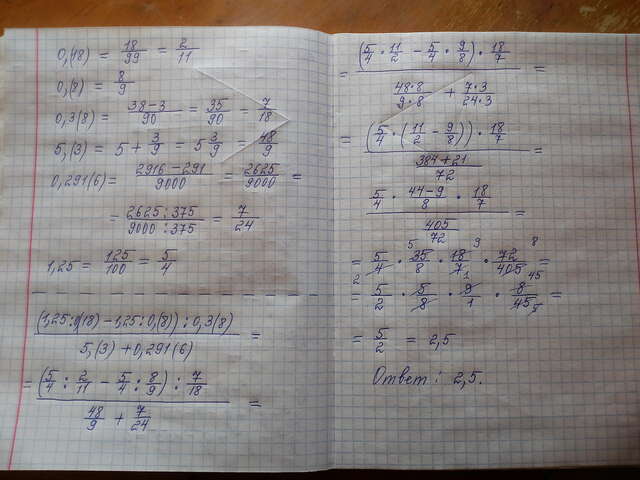 0,(18) = 18/99 = 2/11
0,(8) = 8/9
0,3(8) = (38-3)/90 = 35/90 = 7/18
5,(3) = 5 + 3/9 = 5 3/9 = 48/9
0,291(6) = (2916-291)/9000 = 2625/9000 =
= (2625:375)/(9000:375) = 7/24
1,25 = 125/100 = 5/4
((1,25:0,(18) - 1,25:0,(8)) : 0,3(8))/(5,(3) + 0,291(6)) =
= ((5/4 : 2/11 - 5/4 : 8/9) : 7/18)/(48/9 + 7/24) =
= ((5/4 · 11/2 - 5/4 · 9/8) · 18/7)/((48·8)/(9·8) + (7·3)/(24·3)) =
= ((5/4 · (11/2 - 9/8)) · 18/7)/((384+21)/72) =
(5/4 · (44-9)/8 · 18/7)/(405/72) =
= 5/4 · 35/8 · 18/7 · 72/405 =
2 5 9 1 8 45
= 5/2 · 5/8 · 9/1 · 8/45 =
5
= 5/2 = 2,5
Ответ: 2,5.